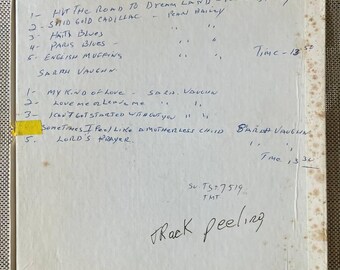 1- HIT THE ROAD TO DREAM LAND
2- SOLID GOLD CADILLAC - PEARL BAILEY
3- HAITI BLUES " "
4- PARIS BLUES - " "
5- ENGLISH MUFFINS " " TIME - 13
SARAH VAUGHN
1- MY KIND OF LOVE - SARA. VAUGHN
2- LOVE ME OR LEAVE ME " "
3- I CAN'T GET STARTED WITHOUT YOU " "
SOMETIMES I FEEL LIKE A MOTHERLESS CHILD SARAH VAUGHN
5- LORD'S PRAYER " "
TIME.
TMT
tRack peeling